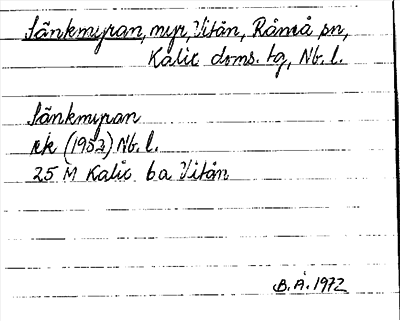 Sänkmyran, myr, Vitån, Råneå sn,
Kalix doms. tg, Nb. l.
Sänkmyran
rk (1953) Nb. l.
25 M Kalix ba Vitån
B. Å. 1972